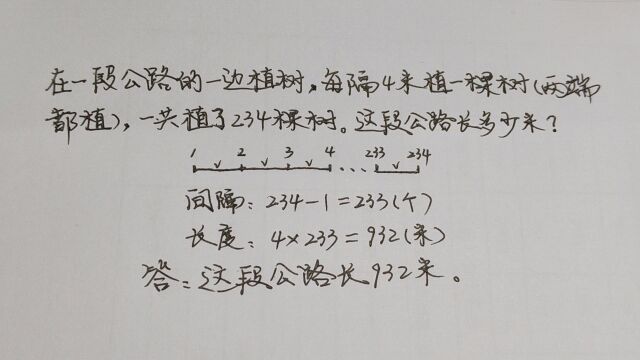 在一段公路的一边植树,每隔4米植一棵树(两端
都植),一共植了234棵树。这段公路长多少米?
1 2 3 4 ... 233 234
间隔:234-1=233(个)
长度:4×233=932(米)
答:这段公路长932米。